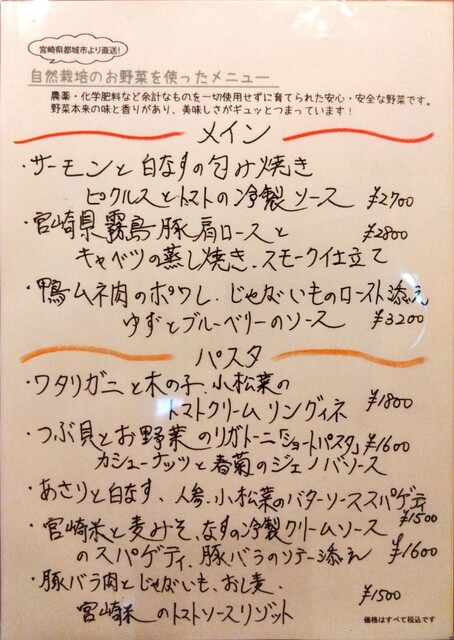 宮崎県都城市より直送!
自然栽培のお野菜を使ったメニュー
農薬・化学肥料など余計なものを一切使用せずに育てられた安心・安全な野菜です。
野菜本来の味と香りがあり、美味しさがギュッとつまっています!
メイン
・サーモンと白なすの包み焼き
ピクルスとトマトの冷製ソース ¥2700
・宮崎県霧島豚肩ロースと ¥2800
キャベツの蒸し焼き、スモークイ仕立て
・鴨ムネ肉のポワレ、じゃがいものロースト添え
ゆずとブルーベリーのソース ¥3200
パスタ
・ワタリガニと木の子、小松菜の
トマトクリームリングイネ ¥1800
・つぶ貝とお野菜のリガトーニ「ショートパスタ」¥1600
カシューナッツと春菊のジェノバソース
・あさりと白なす、人参、小松菜のバターソーススパゲティ
¥1500
・宮崎米と麦みそ、なすの冷製クリームソース
のスパゲティ、豚バラのソテー添え ¥1600
・豚バラ肉とじゃがいも、おし麦、
宮崎米のトマトソースリゾット ¥1500
価格はすべて税込です